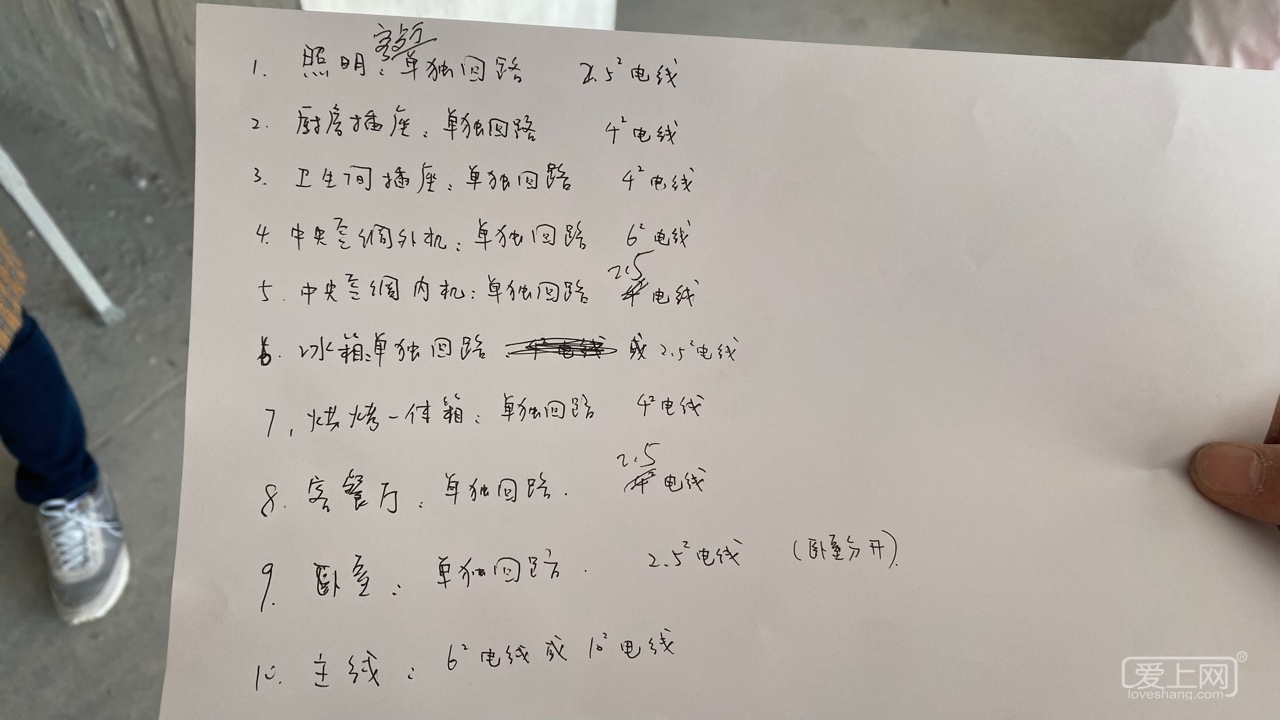 客餐厅
1. 照明:单独回路 2.5²电线
2. 厨房插座:单独回路 4²电线
3. 卫生间插座:单独回路 4²电线
4. 中央空调外机:单独回路 6²电线
2.5
5. 中央空调内机:单独回路 电线
6. 冰箱:单独回路 或2.5²电线
7. 烘烤一体箱:单独回路 4²电线
2.5
8. 客餐厅:单独回路. 电线
9. 卧室:单独回路. 2.5²电线 (卧室分开).
10. 主线: 6²电线或10²电线
爱上网®
loveshang.com